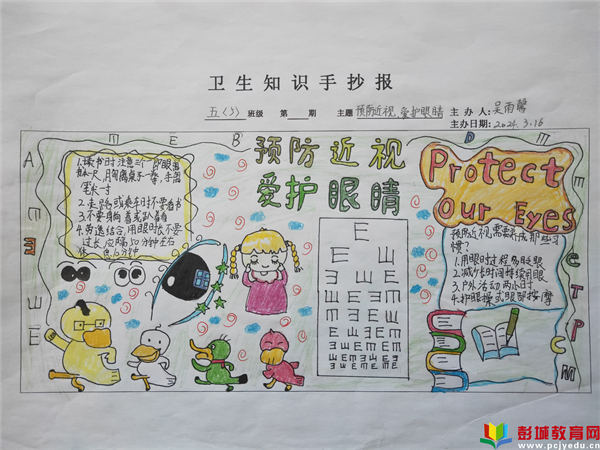 卫生知识手抄报
五(5) 班级 第 期 主题 预防近视 爱护眼睛 主办人: 吴雨馨
主办日期: 2024.3.16
预防近视
爱护眼睛
1.读书时注意三个一即眼离
书本一尺,胸离桌子一拳,手离
笔尖一寸
2.走路或乘车时不要看书
3.不要躺着或趴着看
4.劳逸结合,用眼时长不要
过长,应隔50分钟左右
休息10分钟
Protect
Our Eyes
预防近视需要养成那些习
惯?
1.用眼时过程多眨眼
2.减少时间持续用眼
3.户外活动两小时
4.护眼操或眼部按摩
E
E Ш
彭城教育网
www.pcjyedu.cn